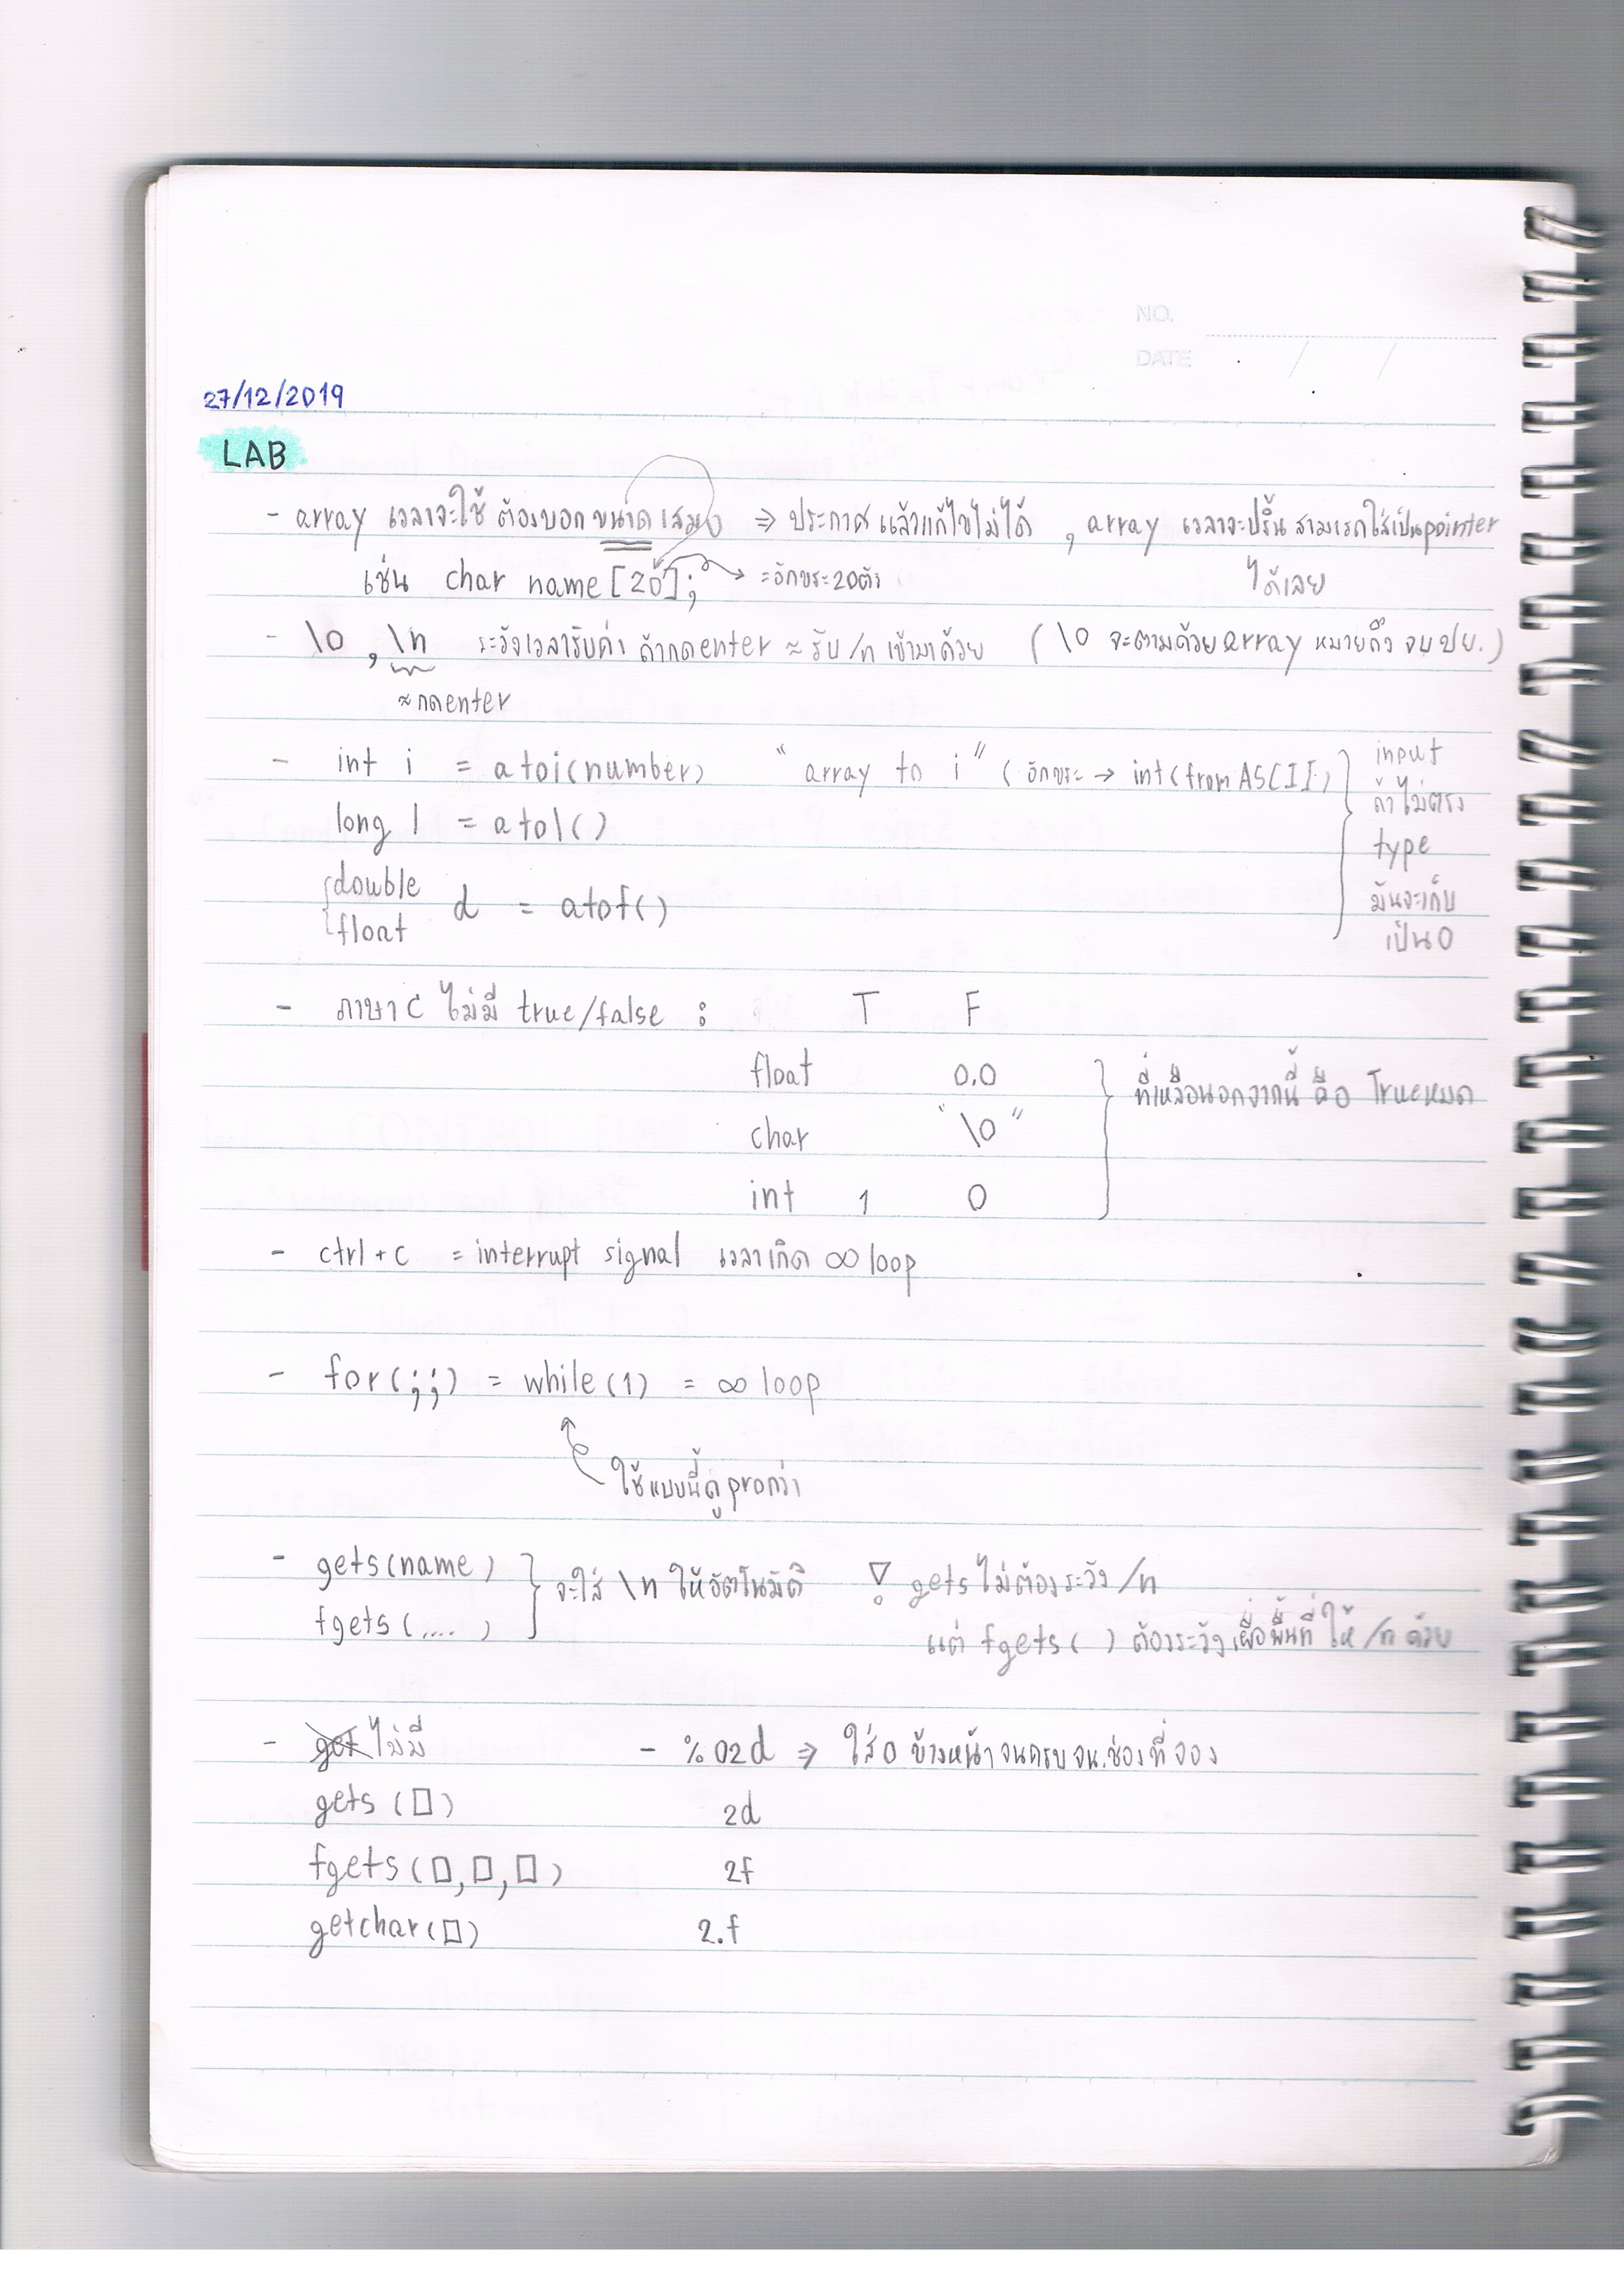 NO.
DATE
27/12/2019
LAB
- array เวลาจะใช้ ต้องบอกขนาดเสมอ ⇒ ประกาศแล้วแก้ไขไม่ได้ , array เวลาจะปริ้น สามารถใส่เป็นpointer
เช่น char name [20]; → =อักขระ20ตัว ได้เลย
- \0 , \n ระวังเวลารับค่า ถ้ากดenter ≈ รับ /n เข้ามาด้วย ( \0 จะตามด้วยarray หมายถึง จบ ปย. )
≈ กดenter
- int i = atoi(number) “array to i” ( อักขระ → int (from ASCII) } input
ถ้าไม่ตรง
long l = atol()
type
{double float d = atof()
มันจะเก็บ
เป็น 0
- ภาษา C ไม่มี true/false : T F
float 0.0 } ที่เหลือนอกจากนี้ คือ Trueหมด
char “\0”
int 1 0
- ctrl + c = interrupt signal เวลาเกิด ∞ loop
- for(;;) = while(1) = ∞ loop
ใช้แบบนี้ดูproกว่า
- gets(name) } จะใส่ \n ให้อัตโนมัติ gets ไม่ต้องระวัง /n
fgets(....) แต่ fgets( ) ต้องระวัง เผื่อพื้นที่ ให้ /n ด้วย
- get ไม่มี - %02d ⇒ ใส่ 0 ข้างหน้าจนครบจน.ช่องที่จอง
gets (□) 2d
fgets(□,□,□) 2f
getchar(□) 2.f